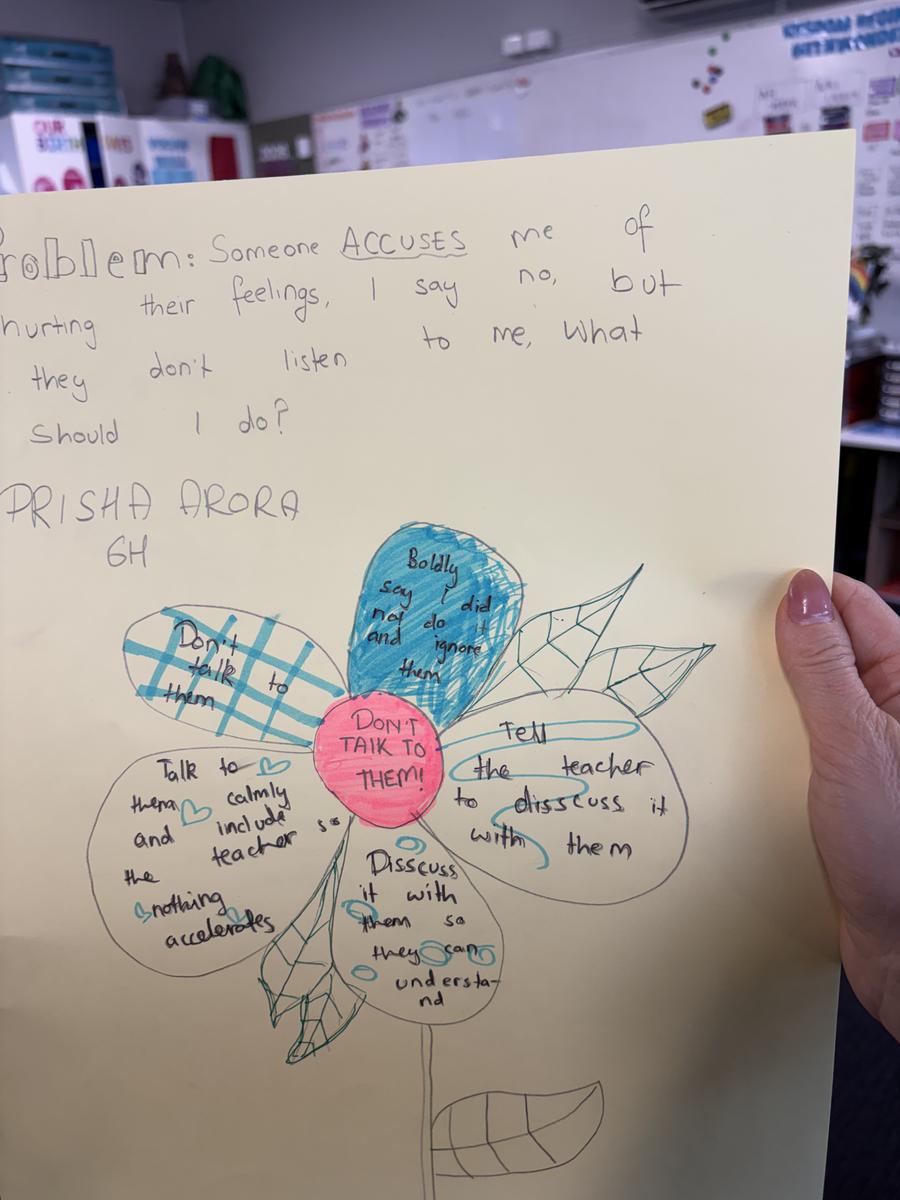 Problem: Someone ACCUSES me of
hurting their feelings, I say no, but
they don't listen to me, what
should I do?
PRISHA ARORA
6H
Boldly
say I did
not do it
and ignore
them
Don't
talk to
them
DON'T
TALK TO
THEM!
Tell
the teacher
to disscuss it
with them
Talk to
them calmly
and include
the teacher so
nothing
accelerates
Disscuss
it with
them so
they can
understa-
nd
OUR